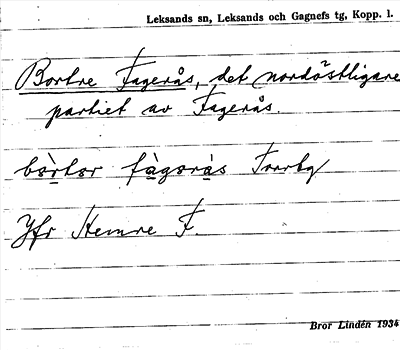 Leksands sn, Leksands och Gagnefs tg, Kopp. l.
Bortre Fagerås, det nordöstligare
partiet av Fagerås.
Jfr Hemre F.
Bror Lindén 1934